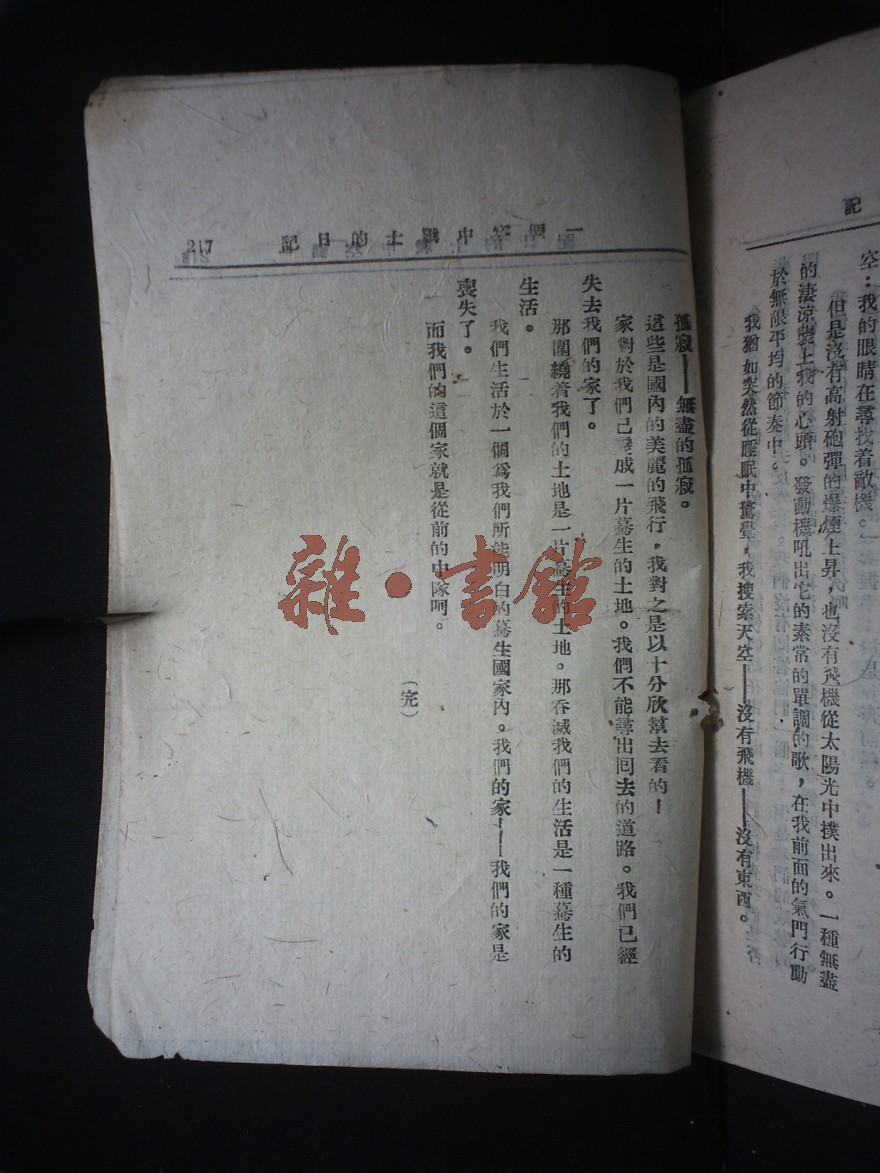 記
空：我的眼睛在尋找着敵機。
但是沒有高射砲彈的爆煙上昇，也沒有飛機從太陽光中撲出來。一種無盡
的淒涼襲上我的心頭。發動機吼出它的素常的單調的歌，在我前面的氣門行動
於無限平均的節奏中。
我猶如突然從睡眠中驚覺，我搜索天空——沒有飛機——沒有東西。
一個空中戰士的日記
217
孤寂——無盡的孤寂。
這些是國內的美麗的飛行，我對之是以十分欣幫去看的！
家對於我們已變成一片驀生的土地。我們不能尋出囘去的道路。我們已經
失去我們的家了。
那圍繞着我們的土地是一片驀生的土地。那吞滅我們的生活是一種驀生的
生活。
我們生活於一個爲我們所能明白的驀生國家內。我們的家——我們的家是
喪失了。
而我們的這個家就是從前的中隊呵。
（完）
雜·書館